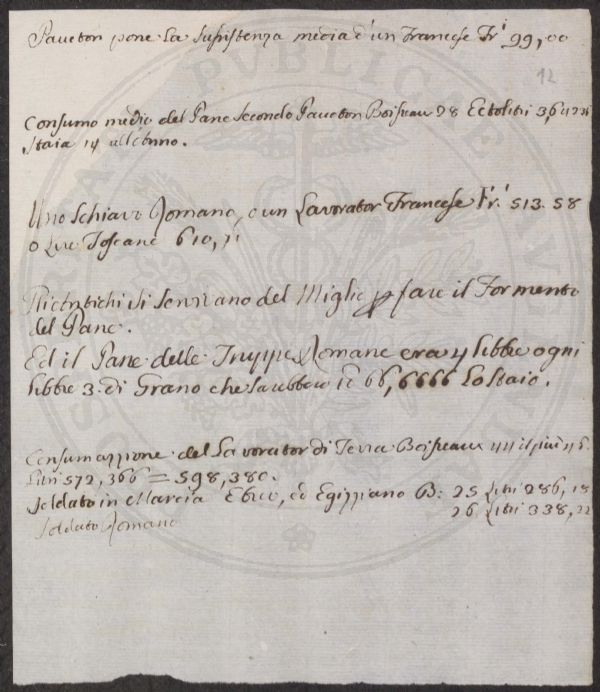 Paucton pone La Sussistenza media d'un Francese Fr.i 99,00
12
Consumo medio del Pane secondo Paucton Boisseau 28 Ectolitri 3,6
Staia 14 all'anno.
Uno Schiavo Romano, o un Lavorator Francese Fr.i 513.58
o Lire Toscane 610,11
si servivano del Miglio p fare il Formento
del Pane.
Ed il Pane delle Truppe Romane era 4 libbre ogni
libbre 3. di Grano che sarebbero 66,6666 Lo Staio.
Consumazione del Lavorator di Terra Boisseaux 44 il più 46.
Litri 572,366 = 598,380.
Soldato in Marcia Ebreo, ed Egizziano B: 25 Litri 286,18
26 Litri 338,22
Soldato Romano